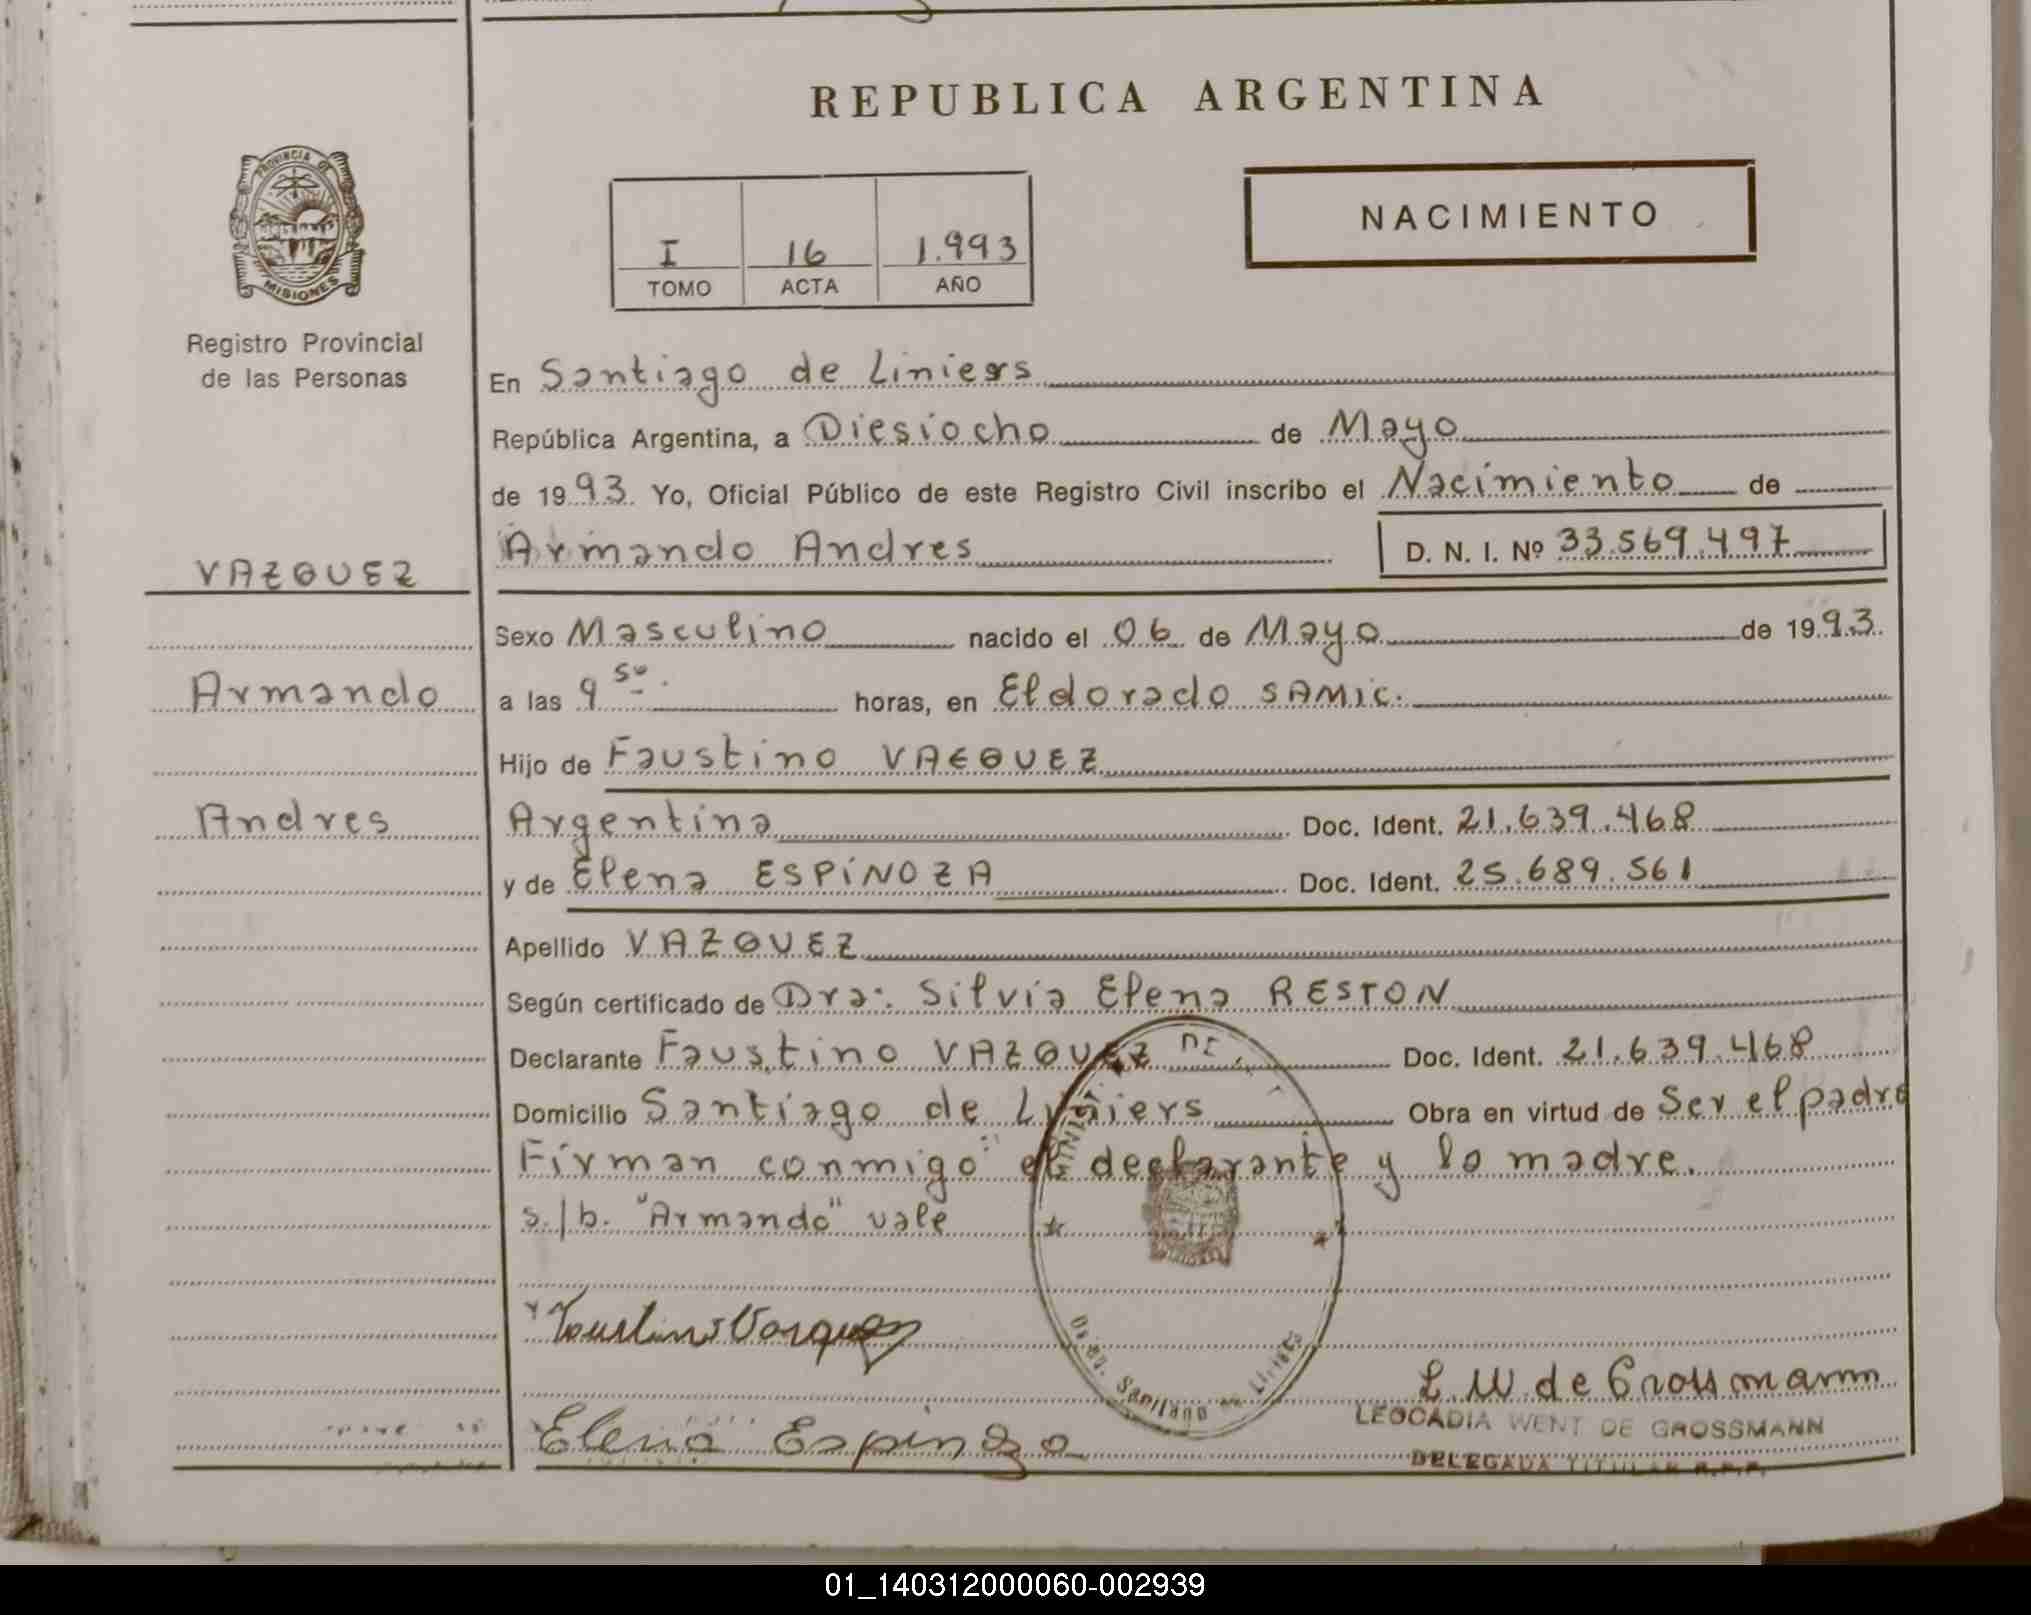 REPUBLICA ARGENTINA
PROVINCIA DE
MISIONES
Registro Provincial
de las Personas
I 16 1.993
TOMO ACTA AÑO
NACIMIENTO
En Santiago de Liniers
República Argentina, a Diesiocho de Mayo
de 1993. Yo, Oficial Público de este Registro Civil inscribo el Nacimiento de
VAZQUEZ
Armando Andres D. N. I. Nº 33.569.497
Sexo Masculino nacido el 06 de Mayo de 1993.
Armando
a las 9 50. horas, en Eldorado SAMIC.
Hijo de Faustino VAZQUEZ
Andres
Argentina Doc. Ident. 21.639.468
y de Elena ESPINOZA Doc. Ident. 25.689.561
Apellido VAZQUEZ
Según certificado de Dra. Silvia Elena RESTON
Declarante Faustino VAZQUEZ Doc. Ident. 21.639.468
Domicilio Santiago de Liniers Obra en virtud de Ser el padre
Firman conmigo el declarante y la madre.
s./b. "Armando" vale
Faustino Vazquez
L W de Grossmann
LEOCADIA WENT DE GROSSMANN
DELEGADA TITULAR R.P.P.
Elena Espinoza
01_140312000060-002939